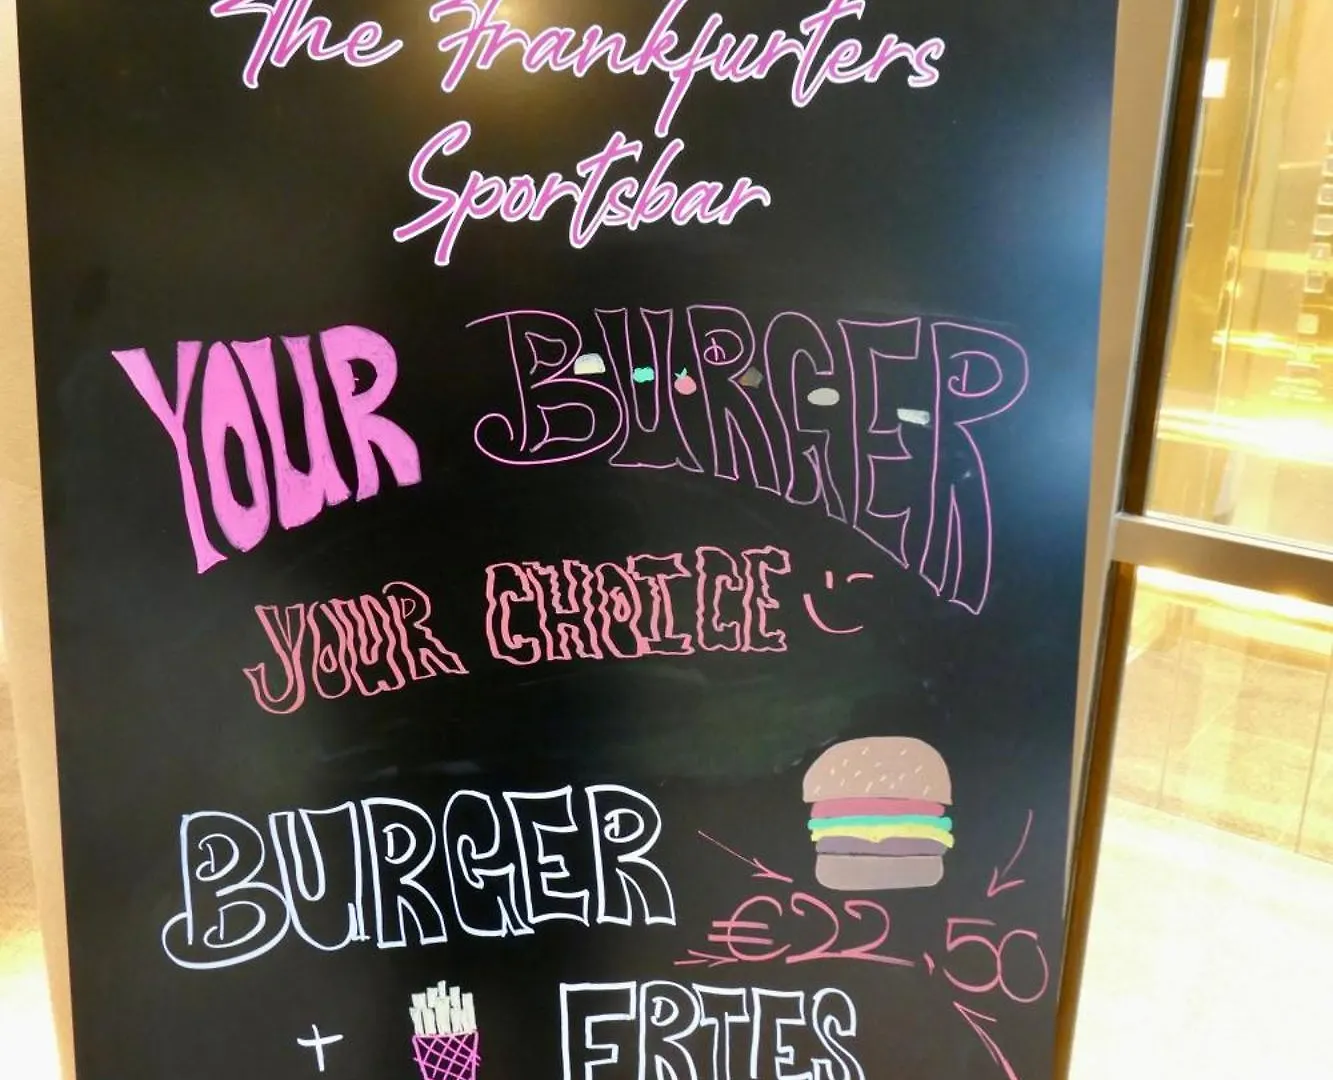 The Frankfurters
Sportsbar
YOUR BURGER
YOUR CHOICE
BURGER
€22,50
+ FRIES